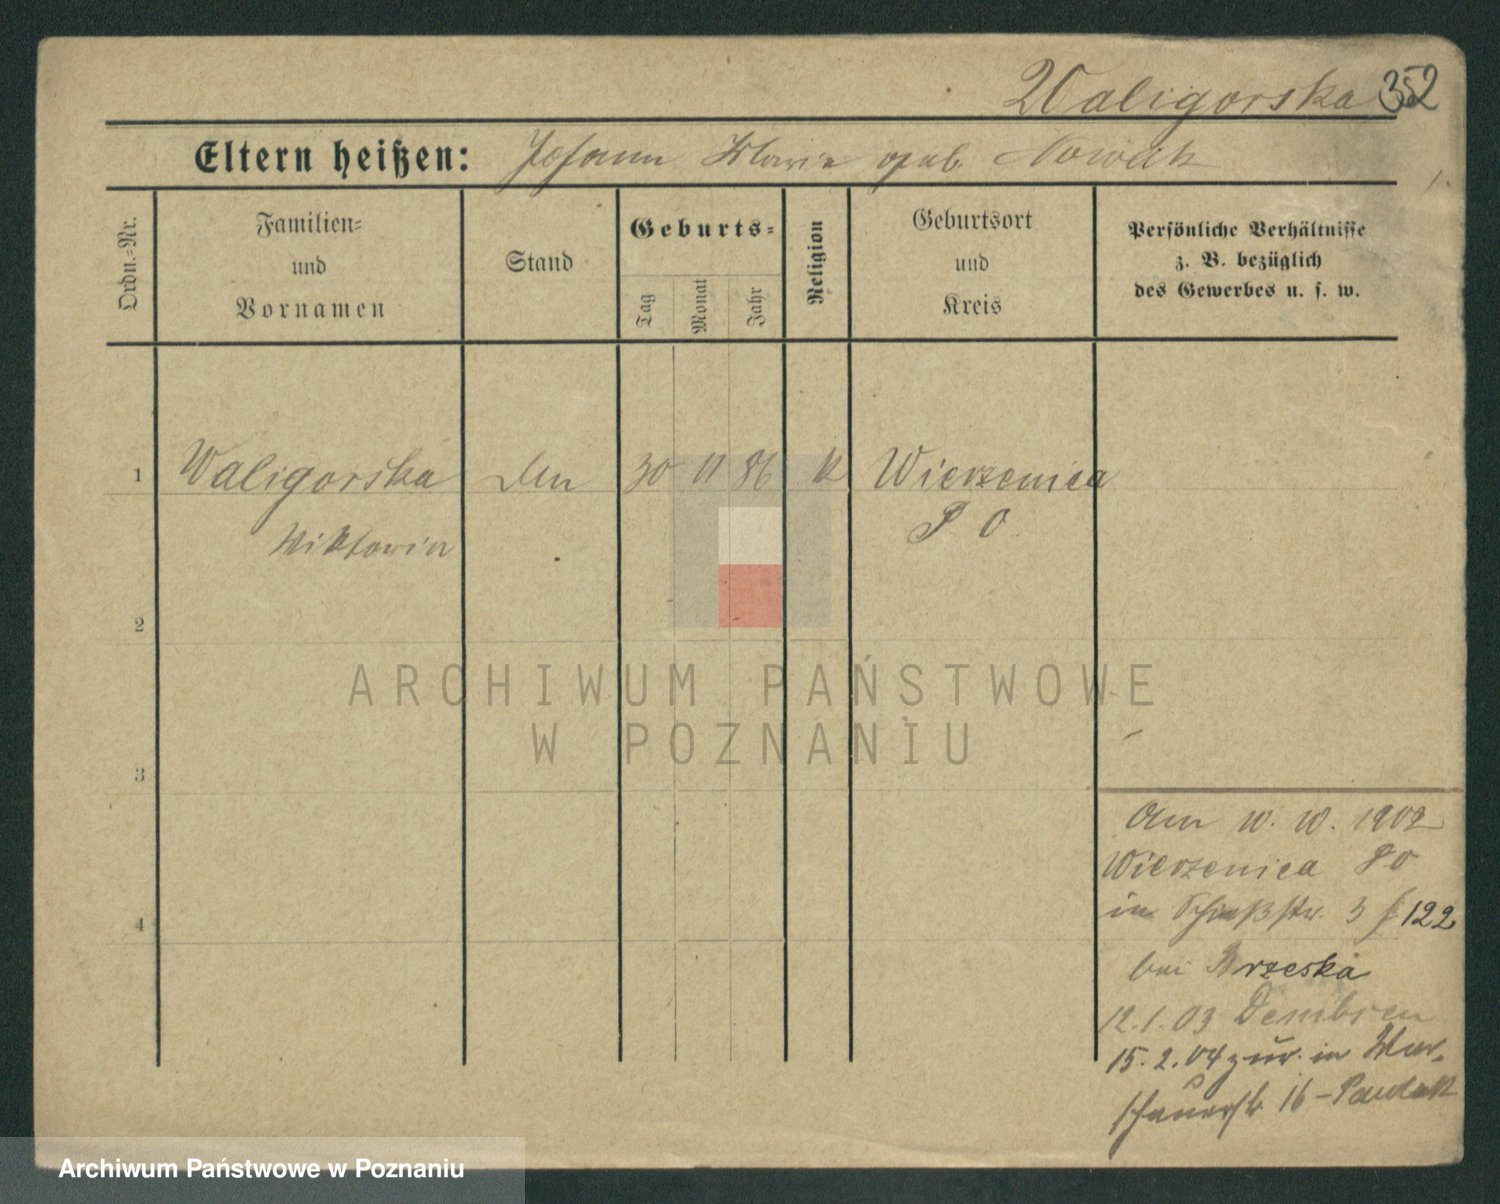 Waligorska 352
Eltern heißen: Johann Maria geb. Nowak
Ordn.-Nr.
Familien-
und
Vornamen
Stand
Geburts-
Tag
Monat
Jahr
Religion
Geburtsort
und
Kreis
Persönliche Verhältnisse
z. B. bezüglich
des Gewerbes u. s. w.
1 Waligorska 30 11 86 k Wierzenica
P O
Wiktoria
2
ARCHIWUM PAŃSTWOWE
W POZNANIU
3
Am 10. 10. 1902
Wierzenica P O
in Schießstr. 3 122
bei Brzeska
12.1.03 Dembsen
15.2.04 zur. in War-
schauerstr 16 -
4
Archiwum Państwowe w Poznaniu